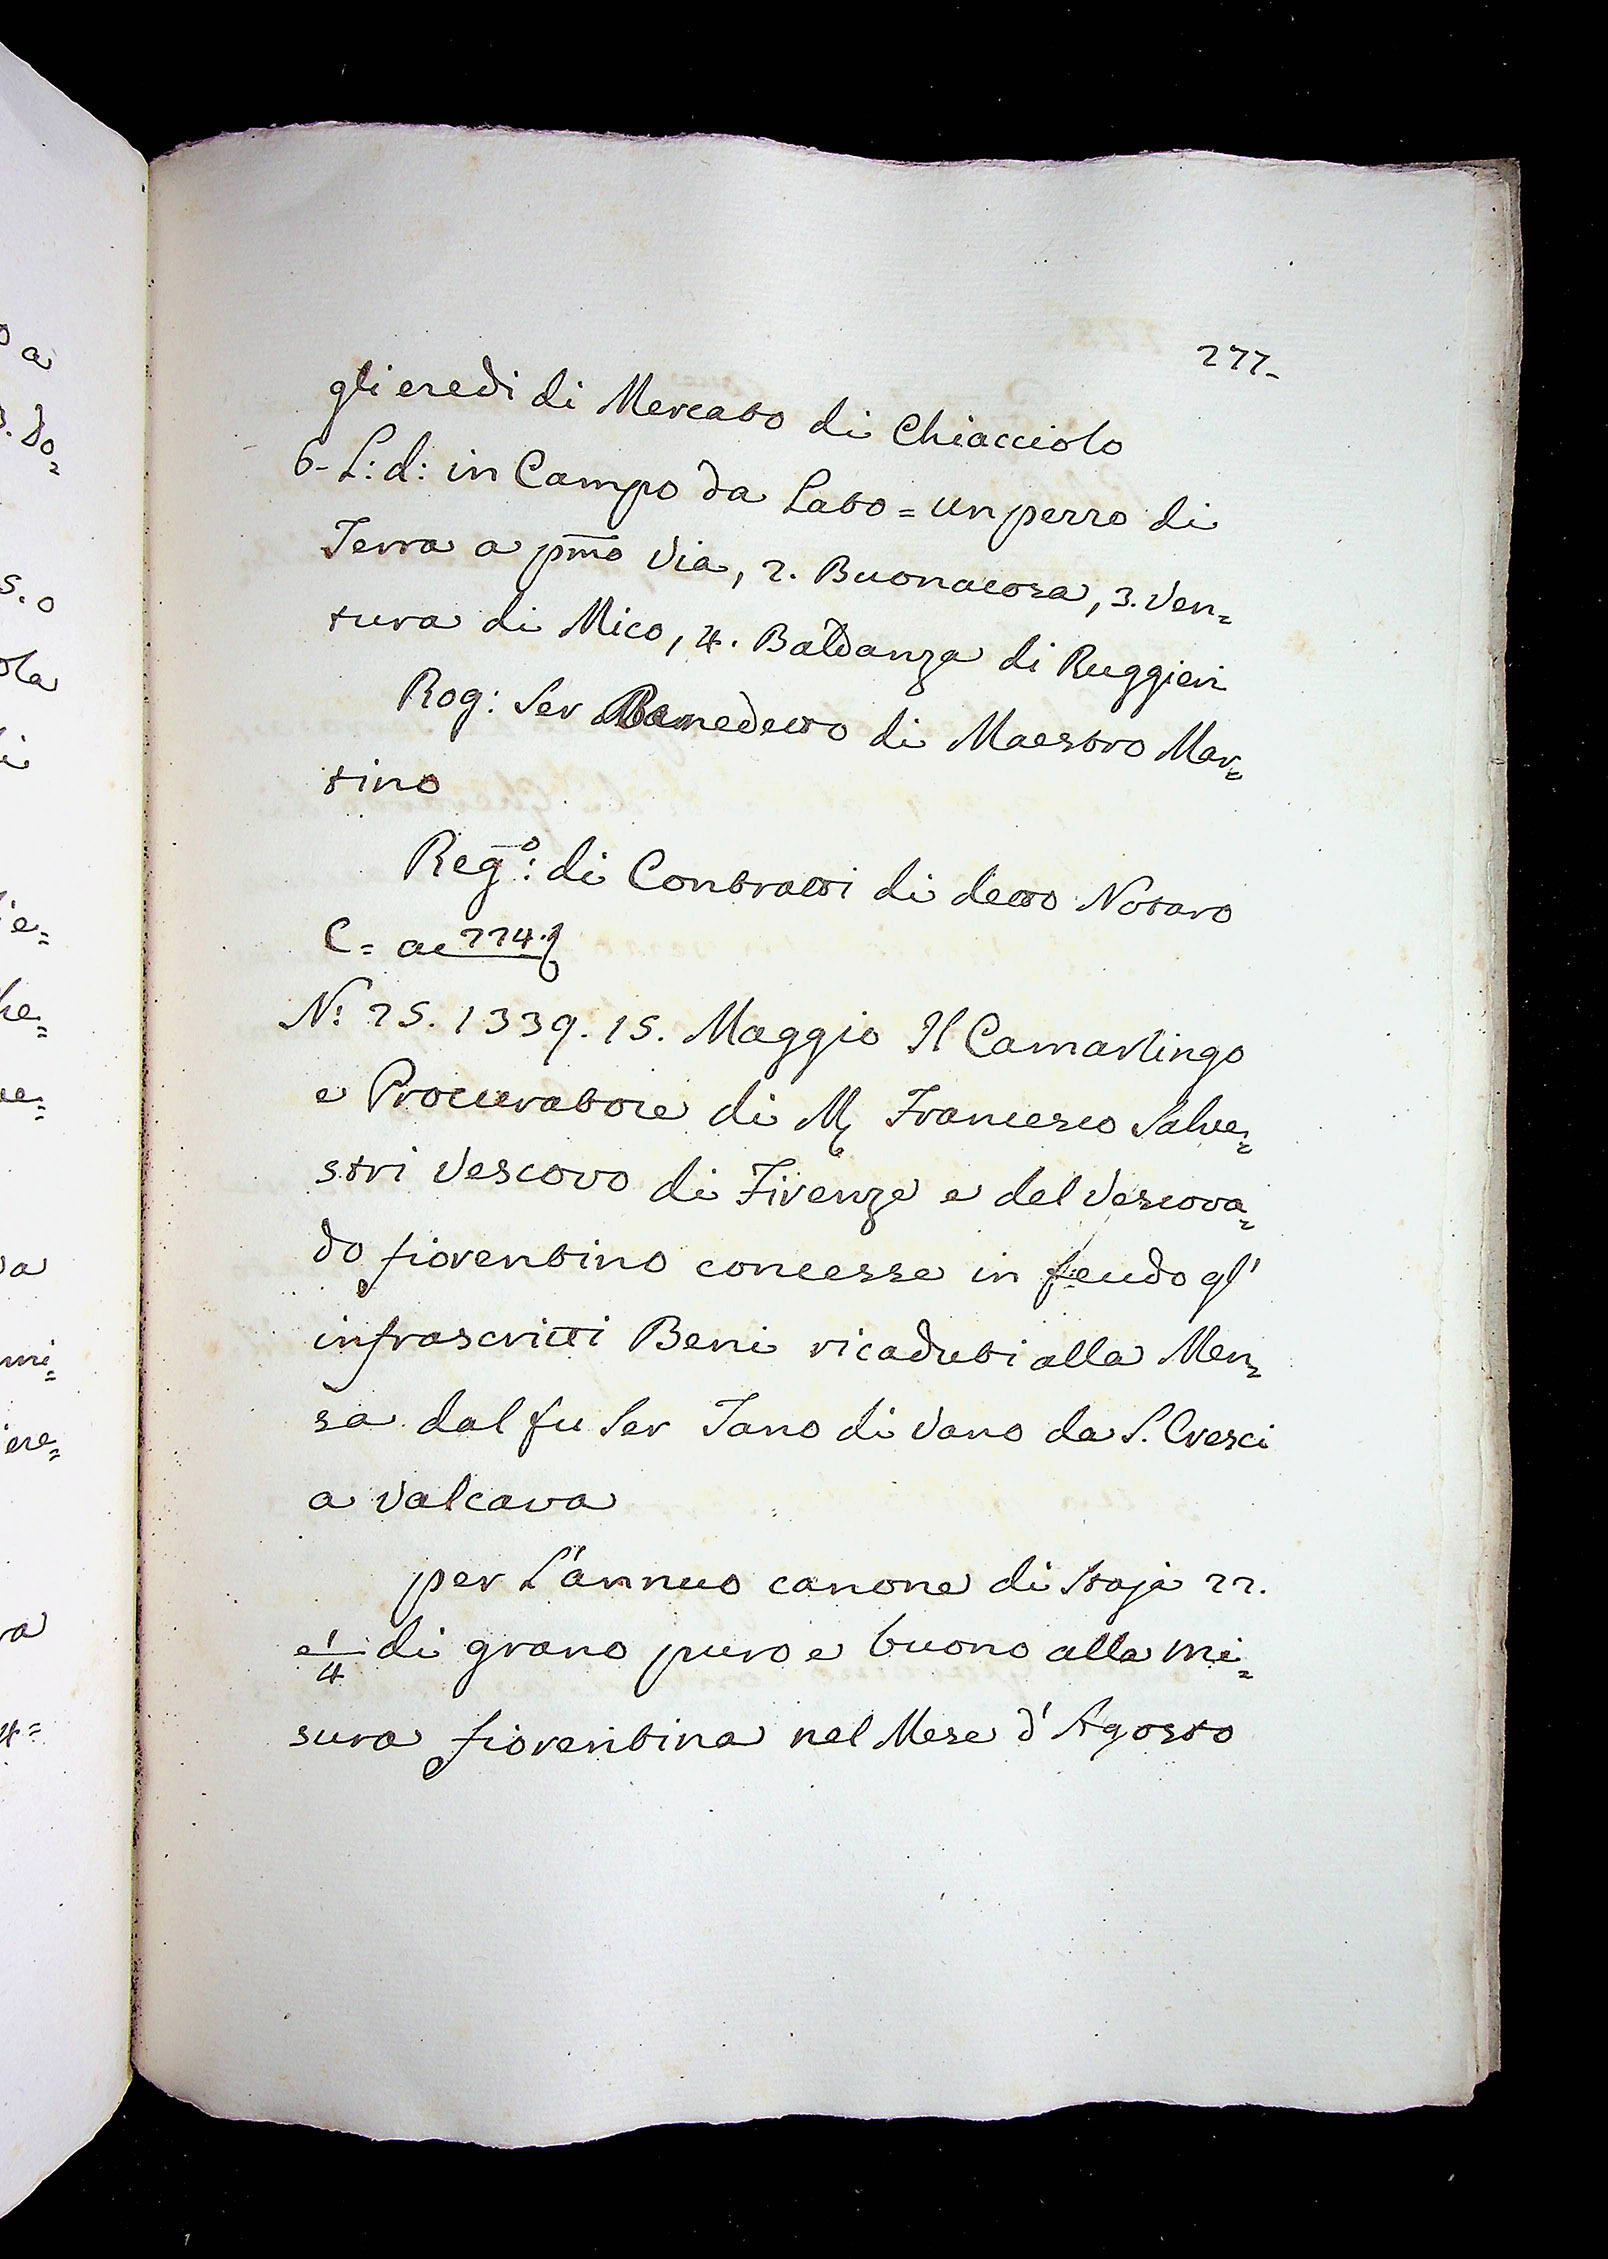 277.
gli eredi di Mercato di Chiacciolo
6- L: d: in Campo da Lato = un pezzo di
Terra a pmo Via, 2. Buonacosa, 3. Ven=
tura di Mico, 4. Baldanza di Ruggieri
Rog: Ser Benedetto di Maestro Mar=
tino
Rego: di Contratti di detto Notaro
C= ac 224.
No: 25. 1339. 15. Maggio Il Camarlingo
e Procuratore di M Francesco Salve=
stri Vescovo di Firenze e del Vescova=
do fiorentino concesse in feudo gl'
infrascritti Beni ricaduti alla Men=
sa dal fu Ser Tano di Vano da S. Cresci
a Valcava
per L'annuo canone di Staja 22.
e 1/4 di grano puro e buono alla mi=
sura fiorentina nel Mese d'Agosto